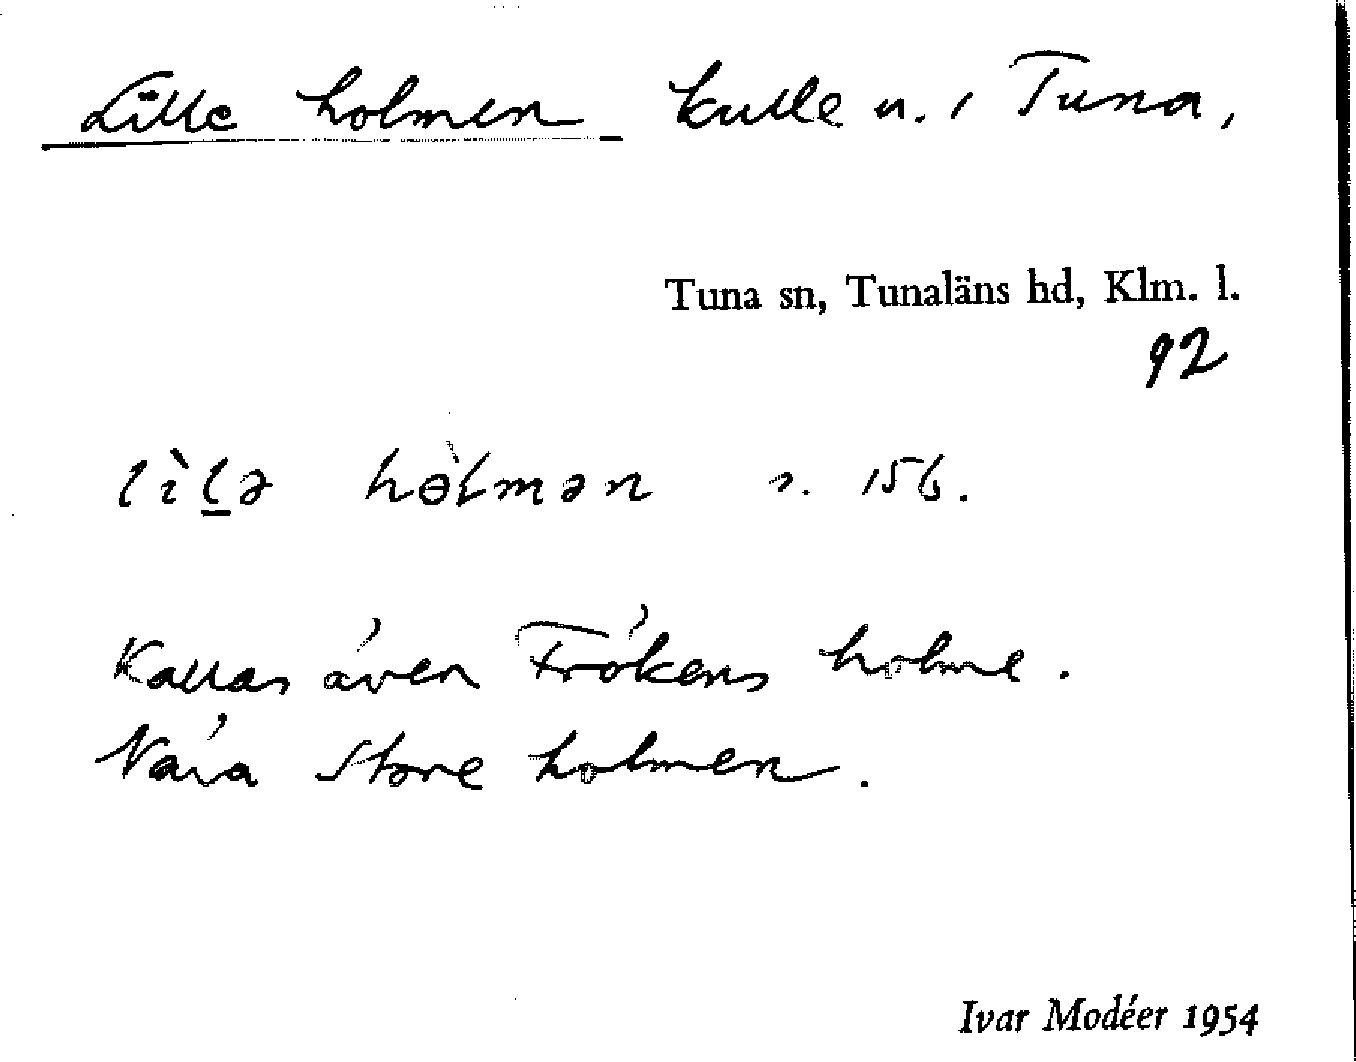 Lille holmen kulle n. i Tuna,
Tuna sn, Tunaläns hd, Klm. l.
92
lìlə hòlmən s. 156.
Kallas även Frökens holme.
Nära Store holmen.
Ivar Modéer 1954